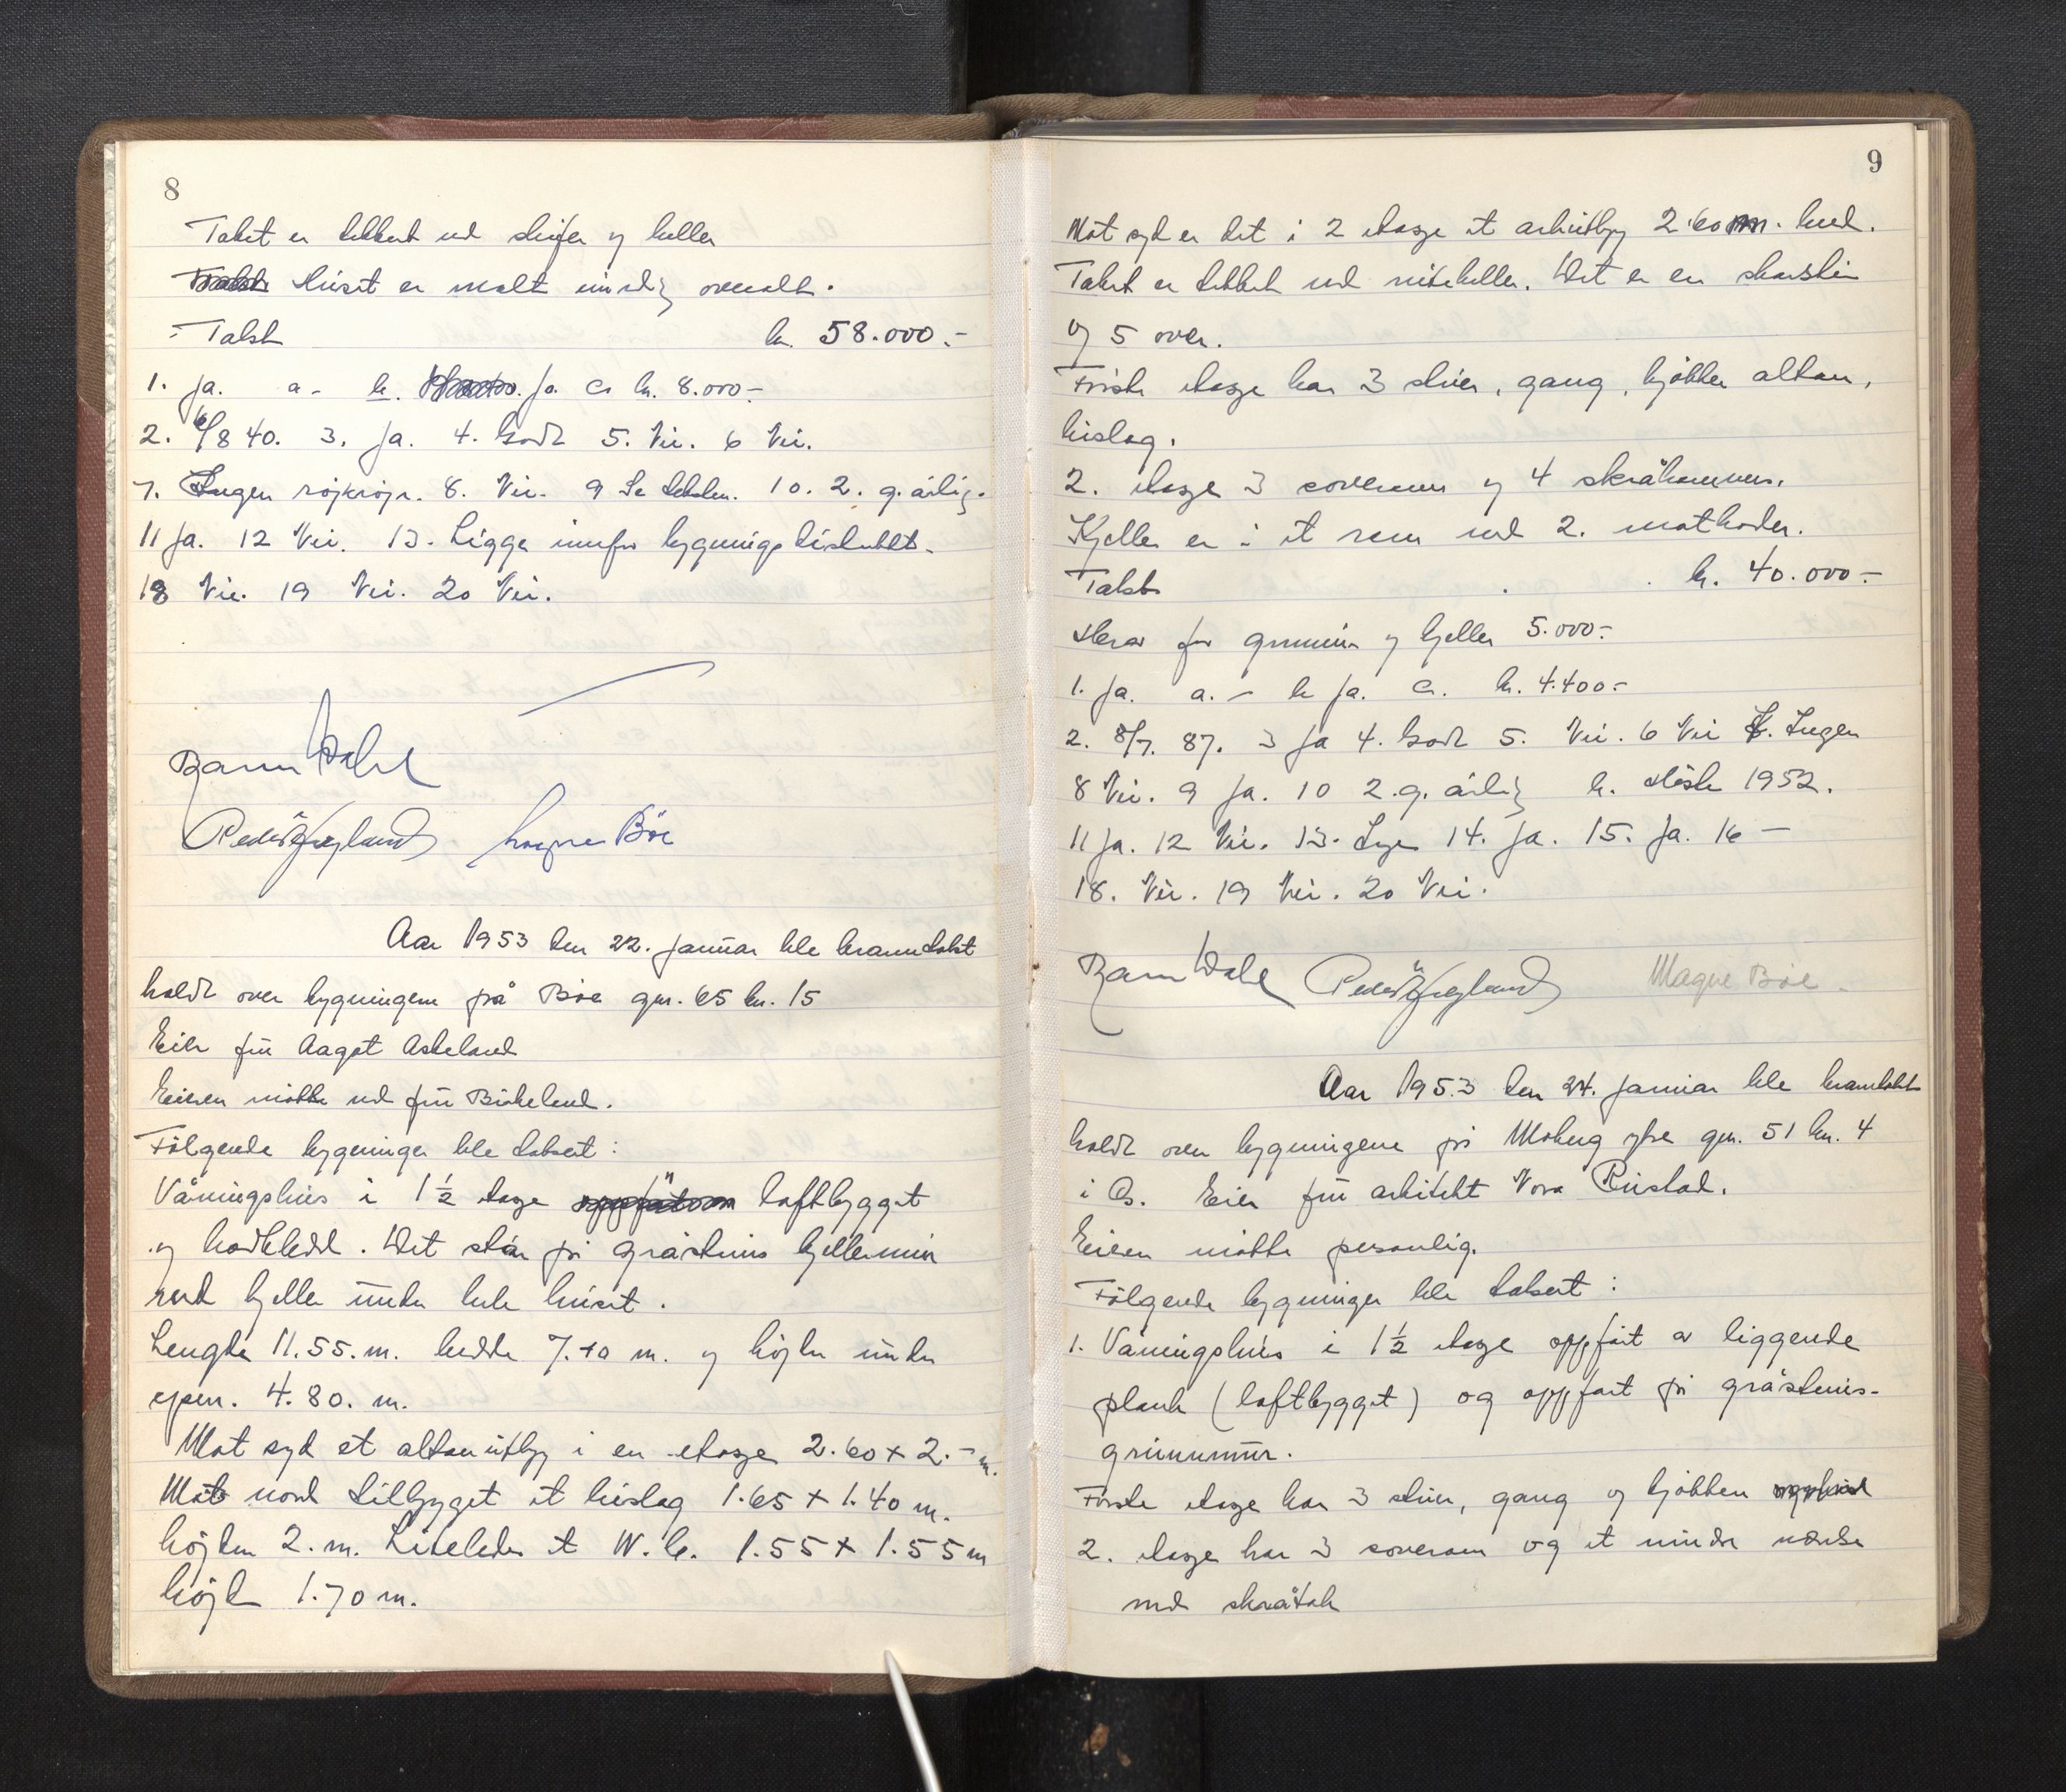 8
Taket er tekket med skifer og heller
Huset er malt innv. og overalt.
Takst kr. 58.000.-
1. ja. a - b. ja. c. kr. 8.000.-
2. 6/8 40. 3. ja. 4. Godt 5. Nei. 6 Nei.
7. Ingen röjkröjr. 8. Nei. 9 Se teksten. 10. 2. g. årlig.
11 ja. 12 Nei. 13. Ligge innfor bygnings distriktet.
18 Nei. 19 Nei. 20 Nei.
Dahl
Peder Øvregland Magne Böe
Aar 1953 den 22. januar ble branntakst
holdt over bygningene på Böe gnr. 65 bnr. 15
Eier fru Aagot Askeland
Eieren møtte ved fru Birkeland.
Fölgende bygninger ble taksert:
Våningshus i 1½ etage laftbygget
og bordkledd. Det står på gråsteins kjellermur
med kjeller under hele huset.
Lengde 11.55. m. bredde 7.70 m. og höjde under
opsen. 4.80. m.
Mot syd et altanutbygg i en etage 2.60 x 2.- m.
Mot nord tilbygget et bislag 1.65 x 1.40 m.
höjden 2. m. Likeledes et W.C. 1.55 x 1.55 m
höjde 1.70 m.
9
Mot syd er det i 2 etage et arkutbygg 2.60 m. bred.
Taket er tekket med skiferheller. Det er en skorstein
og 5 ovner.
Förste etage har 3 stuer, gang, kjökken altan,
bislag.
2. etage 3 soverom og 4 skråkammers.
Kjeller er i et rom med 2. matboder.
Takst kr. 40.000.-
Herav for grunnmur og kjeller 5.000.-
1. ja. a. - b ja. c. kr. 4.400.-
2. 8/7. 87. 3 ja 4. Godt 5. Nei. 6 Nei 7. Ingen
8 Nei. 9 ja. 10 2. g. årlig b. Höst 1952.
11 ja. 12 Nei. 13. Inge 14. ja. 15. ja. 16 -
18. Nei. 19 Nei. 20 Nei.
Dahl Peder Øvregland Magne Böe
Aar 1953 den 24. januar ble branntakst
holdt over bygningene på Moberg ytre gnr. 51 bnr. 4
i Os. Eier fru arkitekt Nora Rustad.
Eieren møtte personlig.
Fölgende bygninger ble taksert:
1. Våningshus i 1½ etage oppfört av liggende
plank (laftbygget) og oppfört på gråsteins-
grunnmur.
Förste etage har 3 stuer, gang og kjökken
2. etage har 3 soverom og et mindre værelse
med skråtak